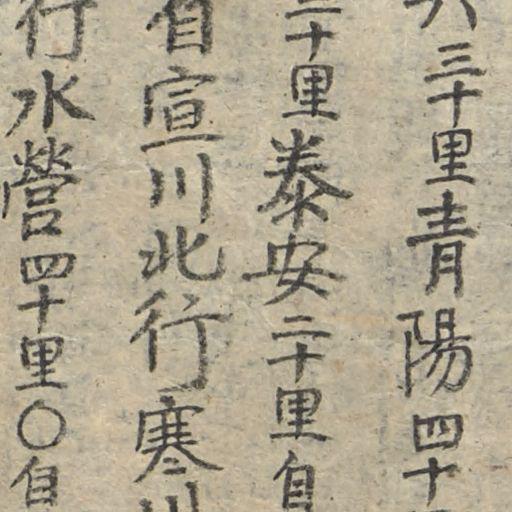 三十里青陽四十
二十里泰安二十里自
自宣川北行寒
行水營四十里〇自